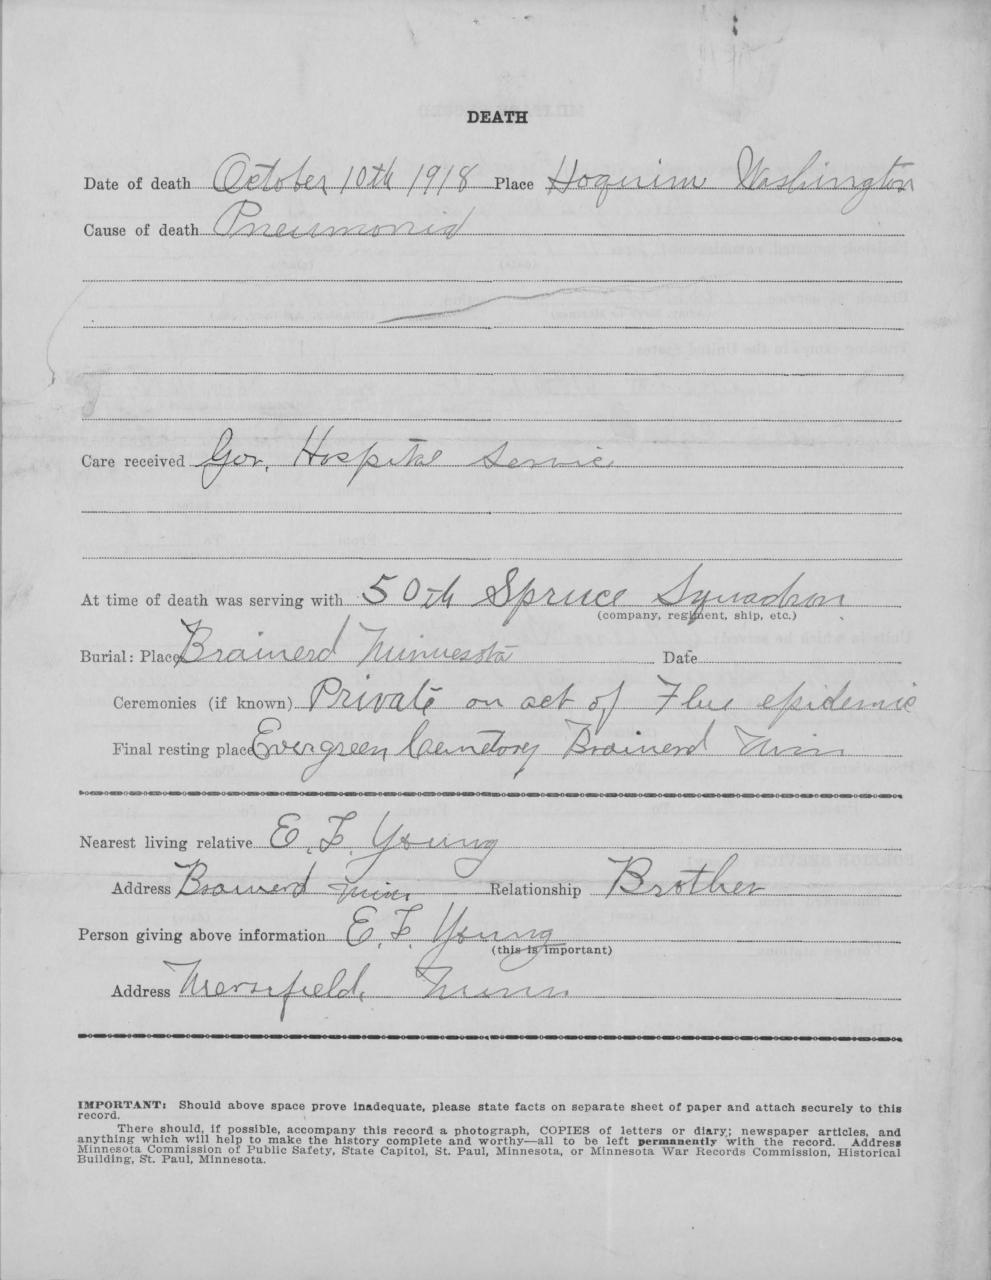 DEATH
Date of death October 10th 1918 Place Hoquiim Washington
Cause of death Pneumonia
Care received Gov. Hospital Service
At time of death was serving with 50th Spruce Squadron
(company, regiment, ship, etc.)
Burial: Place Brainerd Minnesota Date
Ceremonies (if known) Private on act of Flue epidemic
Final resting place Evergreen Cemetery Brainerd Minn
Nearest living relative E. F. Young
Address Brainerd Minn. Relationship Brother
Person giving above information E. F. Young
(this is important)
Address Merrifield, Minn
IMPORTANT: Should above space prove inadequate, please state facts on separate sheet of paper and attach securely to this
record.
There should, if possible, accompany this record a photograph, COPIES of letters or diary; newspaper articles, and
anything which will help to make the history complete and worthy—all to be left permanently with the record. Address
Minnesota Commission of Public Safety, State Capitol, St. Paul, Minnesota, or Minnesota War Records Commission, Historical
Building, St. Paul, Minnesota.